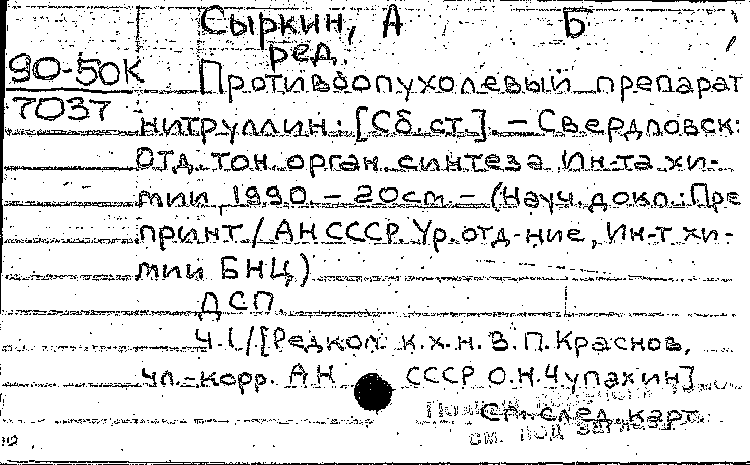 Сыркин, А Б
ред.
90-50К
7037
Противоопухолевый препарат
нитруллин: [Сб. ст.]. – Свердловск:
Отд. тон. орган. синтеза Ин-та хи-
мии, 1990. – 20 см. – (Науч. докл.: Пре
принт / АН СССР. Ур. отд-ние, Ин-т хи-
мии БНЦ)
ДСП.
Ч. 1 / [Редкол. к.х.н. В. П. Краснов,
чл.-корр. АН СССР О. Н. Чупахин]
См. след. карт.
см. под